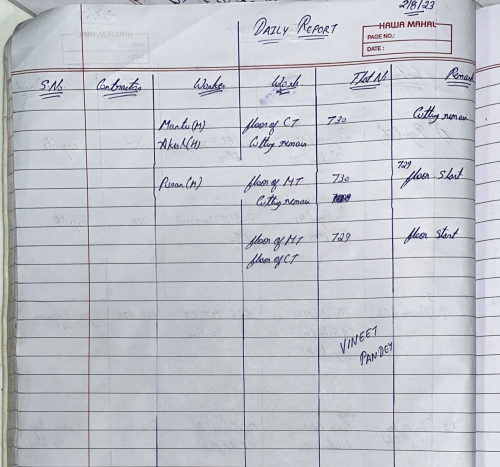 2/8/23
DAILY REPORT
HAWA MAHAL
PAGE NO.:
DATE :
S.No Contractor Worker Work Flat No Remark
Mantu (M) floor of CT 730 Cutting remain
Cutting remain
Puran (M) floor of MT 730 729 floor Start
Cutting remain
floor of MT 729 floor Start
floor of CT
VINEET
PANDEY